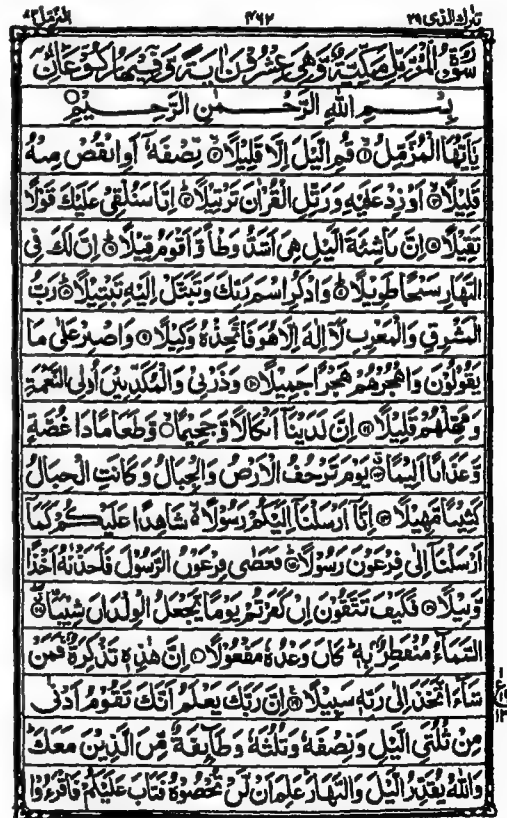 تبٰرك الذی ٢٩ ۴۶۲ المزمل ٧٣
سُوْرَةُ الْمُزَّمِّلِ مَكِّيَّةٌ وَّهِيَ عِشْرُوْنَ اٰيَةً وَّفِيْهَا رُكُوْعَانِ
بِسْمِ اللّٰهِ الرَّحْمٰنِ الرَّحِيْمِ
يٰۤاَيُّهَا الْمُزَّمِّلُ ۙ۱ قُمِ الَّيْلَ اِلَّا قَلِيْلًا ۙ۲ نِّصْفَهٗۤ اَوِ انْقُصْ مِنْهُ
قَلِيْلًا ۙ۳ اَوْ زِدْ عَلَيْهِ وَرَتِّلِ الْقُرْاٰنَ تَرْتِيْلًا ؕ۴ اِنَّا سَنُلْقِيْ عَلَيْكَ قَوْلًا
ثَقِيْلًا ۵ اِنَّ نَاشِئَةَ الَّيْلِ هِيَ اَشَدُّ وَطْاً وَّاَقْوَمُ قِيْلًا ؕ۶ اِنَّ لَكَ فِي
النَّهَارِ سَبْحًا طَوِيْلًا ؕ۷ وَاذْكُرِ اسْمَ رَبِّكَ وَتَبَتَّلْ اِلَيْهِ تَبْتِيْلًا ؕ۸ رَبُّ
الْمَشْرِقِ وَالْمَغْرِبِ لَاۤ اِلٰهَ اِلَّا هُوَ فَاتَّخِذْهُ وَكِيْلًا ۹ وَاصْبِرْ عَلٰى مَا
يَقُوْلُوْنَ وَاهْجُرْهُمْ هَجْرًا جَمِيْلًا ۱۰ وَذَرْنِيْ وَالْمُكَذِّبِيْنَ اُولِى النَّعْمَةِ
وَمَهِّلْهُمْ قَلِيْلًا ۱۱ اِنَّ لَدَيْنَاۤ اَنْكَالًا وَّجَحِيْمًا ۙ۱۲ وَّطَعَامًا ذَا غُصَّةٍ
وَّعَذَابًا اَلِيْمًا ۱۳ يَوْمَ تَرْجُفُ الْاَرْضُ وَالْجِبَالُ وَكَانَتِ الْجِبَالُ
كَثِيْبًا مَّهِيْلًا ۱۴ اِنَّاۤ اَرْسَلْنَاۤ اِلَيْكُمْ رَسُوْلًا ۙ شَاهِدًا عَلَيْكُمْ كَمَاۤ
اَرْسَلْنَاۤ اِلٰى فِرْعَوْنَ رَسُوْلًا ؕ۱۵ فَعَصٰى فِرْعَوْنُ الرَّسُوْلَ فَاَخَذْنٰهُ اَخْذًا
وَّبِيْلًا ۱۶ فَكَيْفَ تَتَّقُوْنَ اِنْ كَفَرْتُمْ يَوْمًا يَّجْعَلُ الْوِلْدَانَ شِيْبًا ۱۷
السَّمَآءُ مُنْفَطِرٌۢ بِهٖ ؕ كَانَ وَعْدُهٗ مَفْعُوْلًا ۱۸ اِنَّ هٰذِهٖ تَذْكِرَةٌ ۚ فَمَنْ
شَآءَ اتَّخَذَ اِلٰى رَبِّهٖ سَبِيْلًا ۱۹ اِنَّ رَبَّكَ يَعْلَمُ اَنَّكَ تَقُوْمُ اَدْنٰى
مِنْ ثُلُثَىِ الَّيْلِ وَنِصْفَهٗ وَثُلُثَهٗ وَطَآئِفَةٌ مِّنَ الَّذِيْنَ مَعَكَ ؕ
وَاللّٰهُ يُقَدِّرُ الَّيْلَ وَالنَّهَارَ ؕ عَلِمَ اَنْ لَّنْ تُحْصُوْهُ فَتَابَ عَلَيْكُمْ فَاقْرَءُوْا